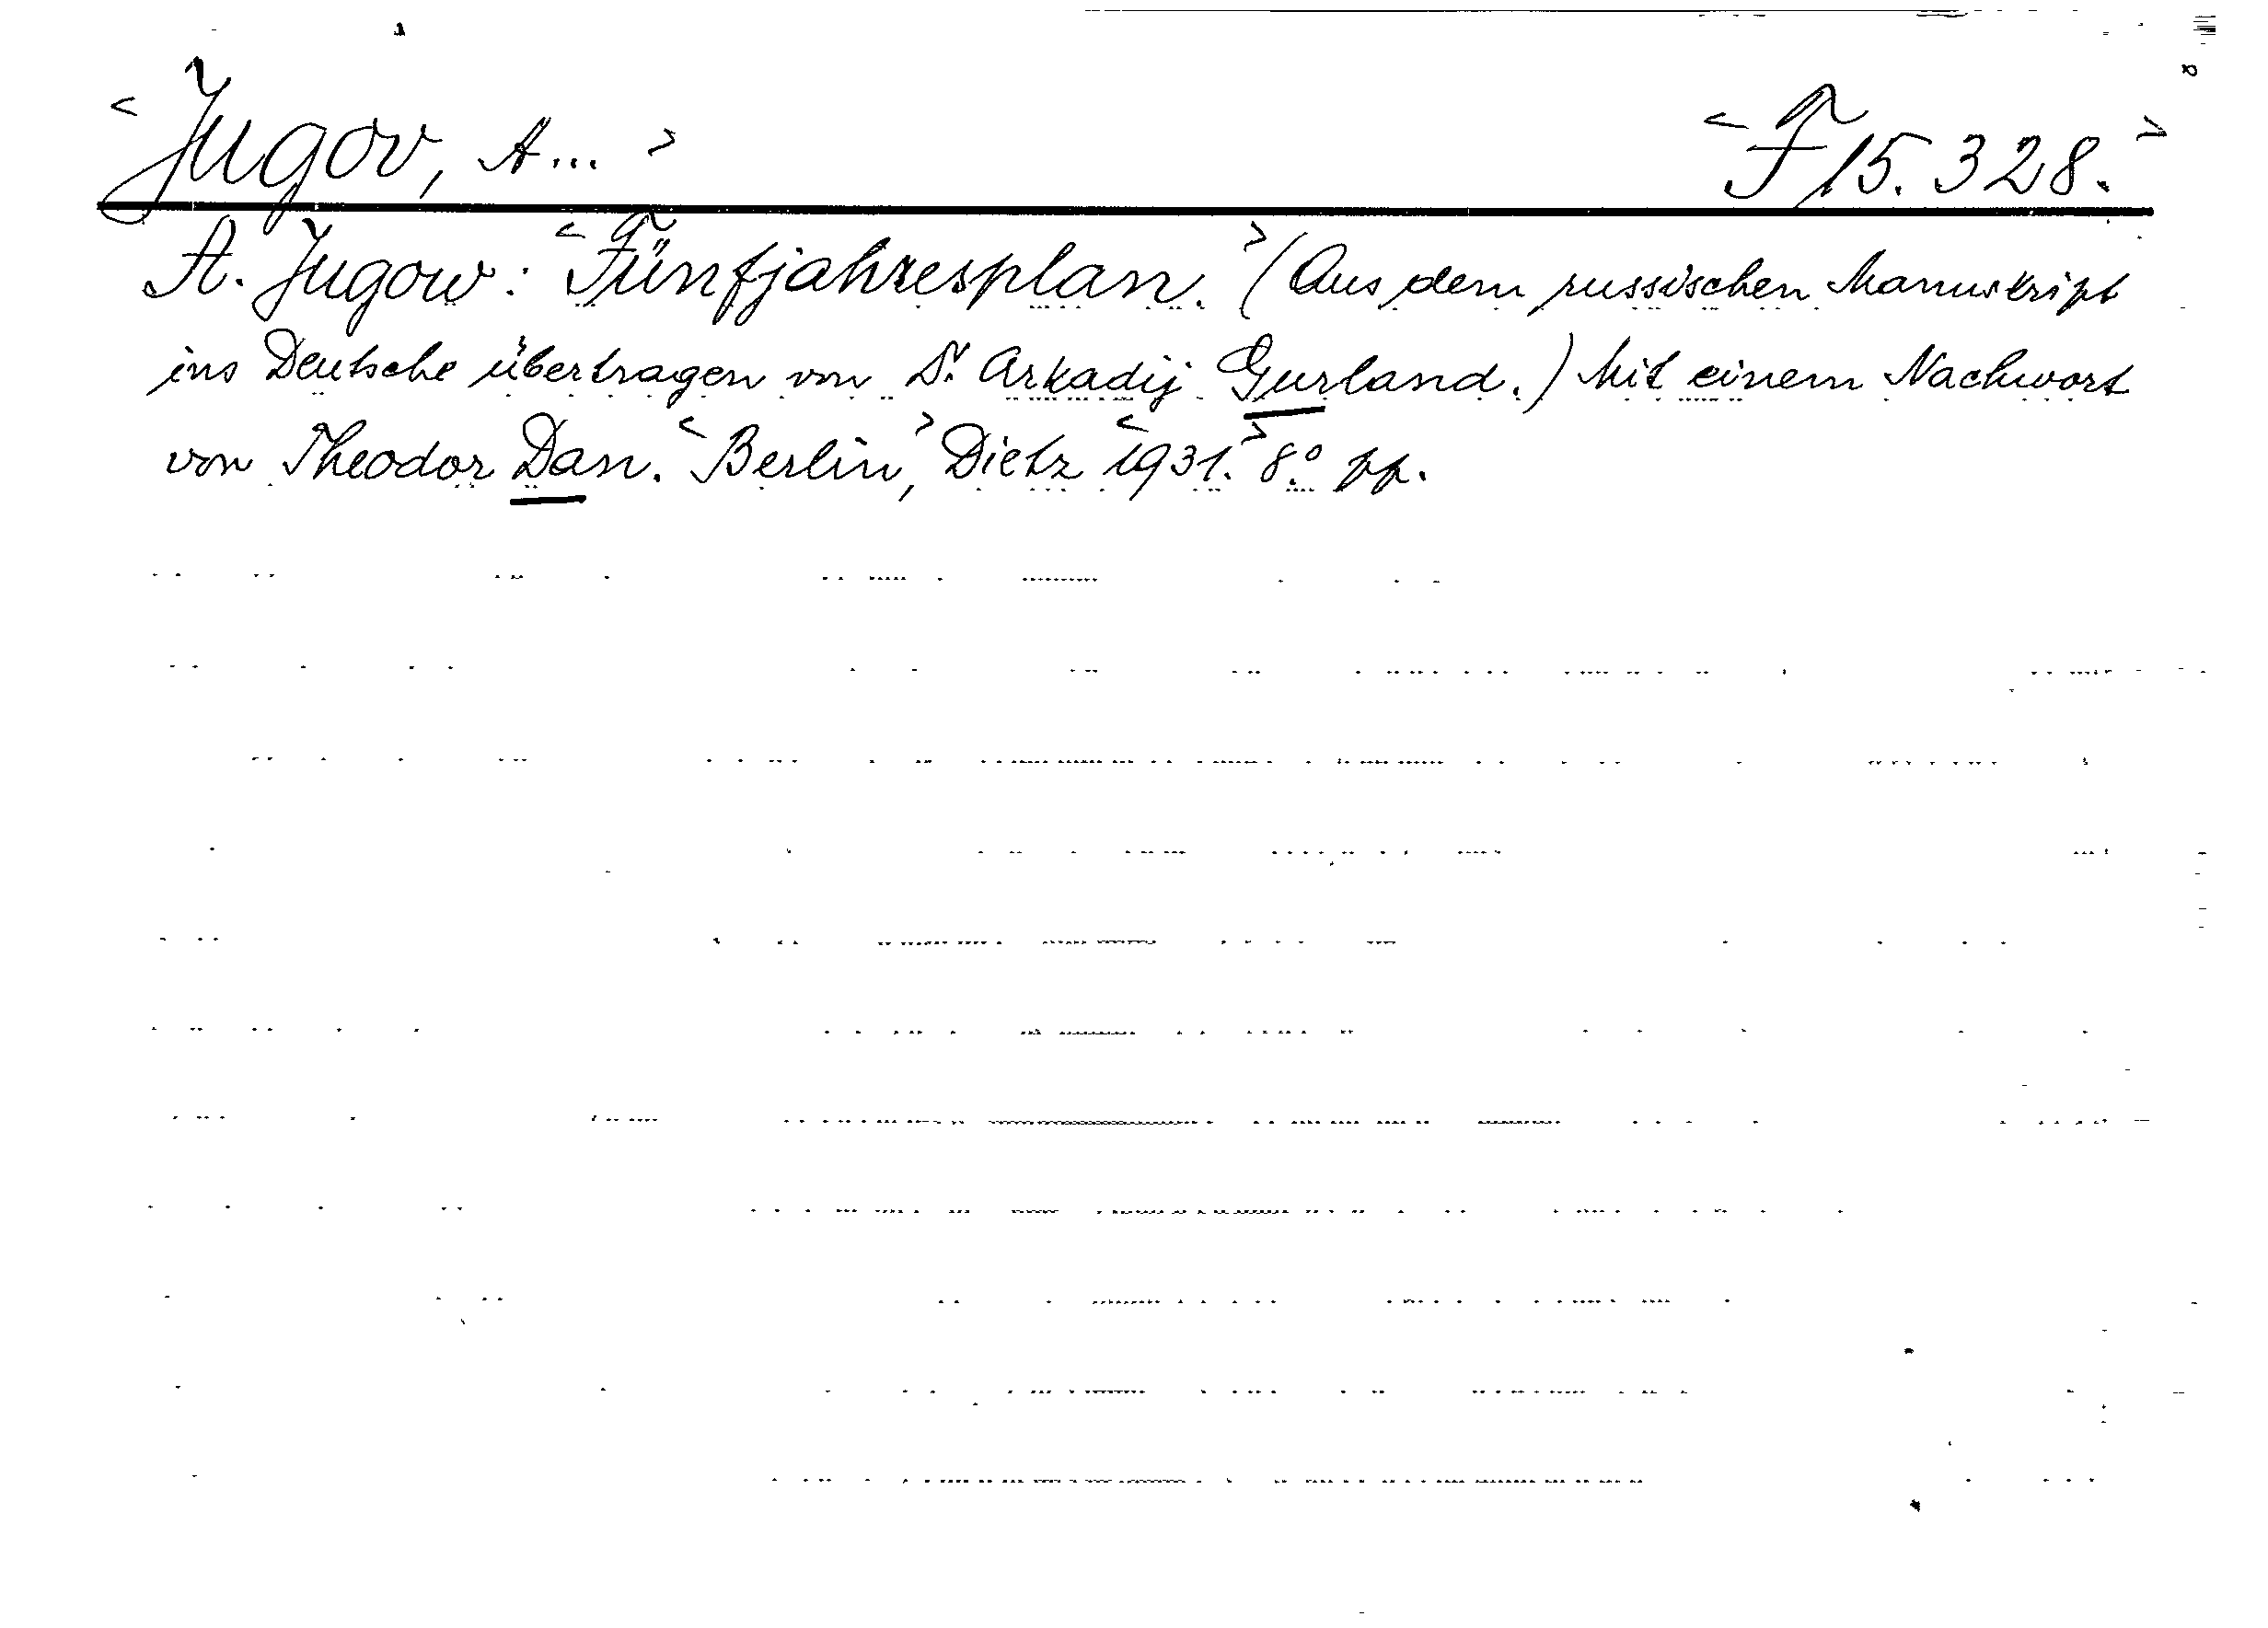 <Jugov, A...> <F 15.328.>
A. Jugow: <Fünfjahresplan.> (Aus dem russischen Manuskript
ins Deutsche übertragen von Dr. Arkadij Gurland.) Mit einem Nachwort
von Theodor Dan. <Berlin,> Dietz <1931.> 8.° pp.